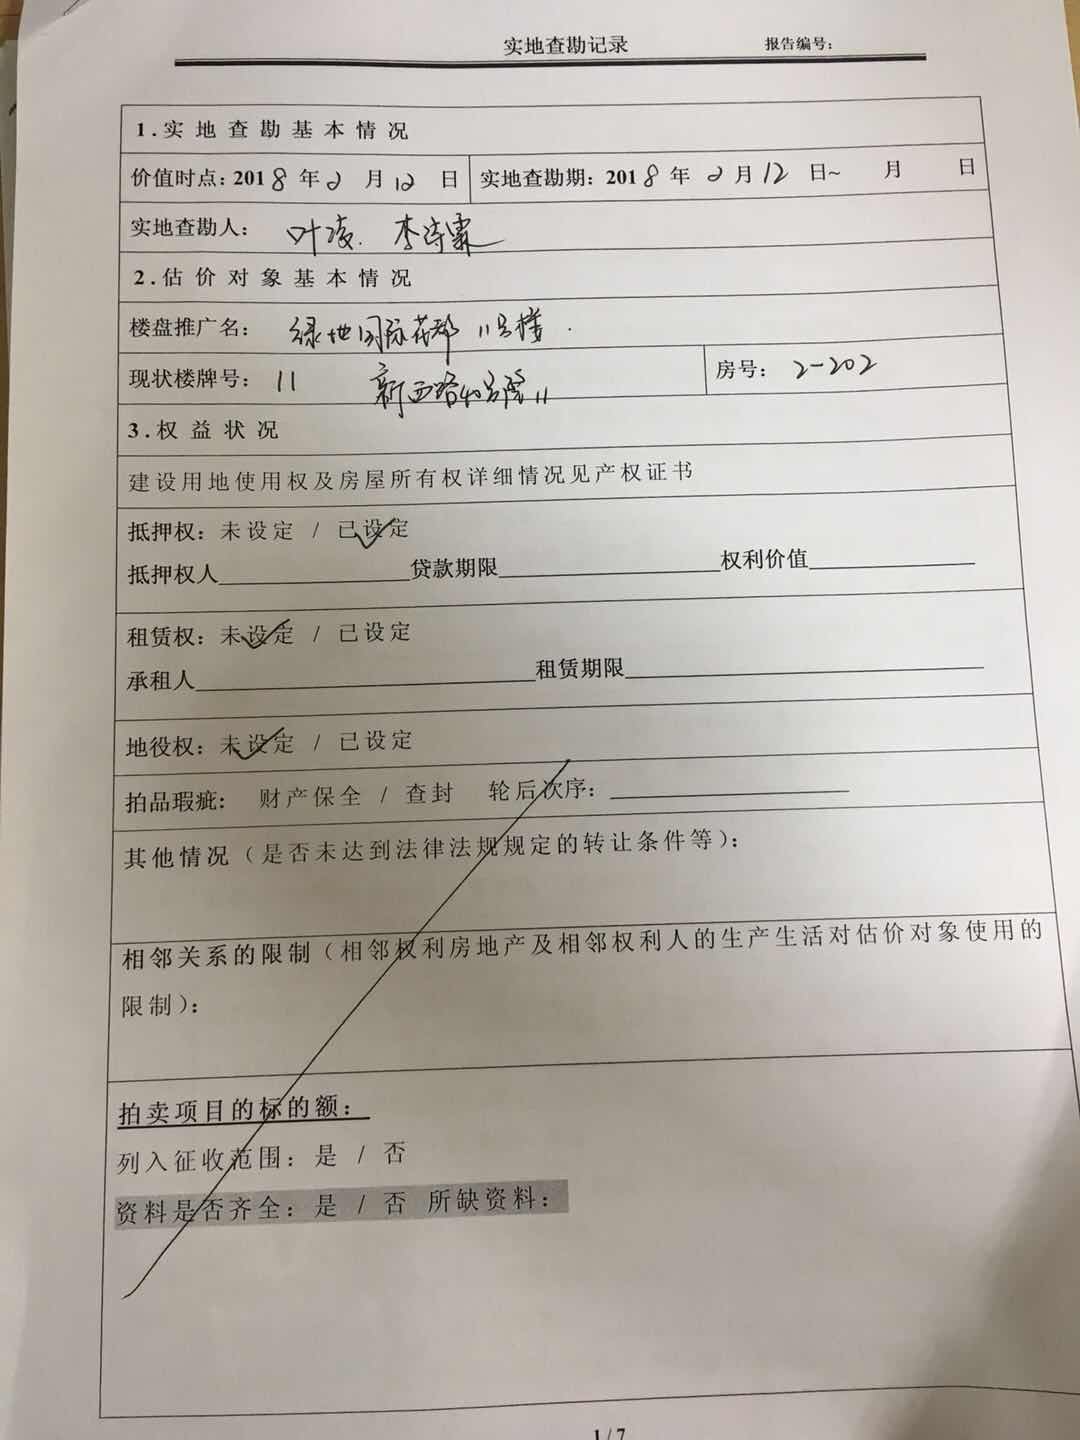 实地查勘记录 报告编号：
1.实地查勘基本情况
价值时点：2018年2月12日 实地查勘期：2018年2月12日~ 月 日
实地查勘人： 叶凌. 李诗霖
2.估价对象基本情况
楼盘推广名： 绿地国际花都 11号楼.
现状楼牌号： 11 新西路40号 11 房号： 2-202
3.权益状况
建设用地使用权及房屋所有权详细情况见产权证书
抵押权：未设定 / 已设定
抵押权人 贷款期限 权利价值
租赁权：未设定 / 已设定
承租人 租赁期限
地役权：未设定 / 已设定
拍品瑕疵： 财产保全 / 查封 轮后次序：
其他情况（是否未达到法律法规规定的转让条件等）：
相邻关系的限制（相邻权利房地产及相邻权利人的生产生活对估价对象使用的
限制）：
拍卖项目的标的额：
列入征收范围：是 / 否
资料是否齐全：是 / 否 所缺资料：
1/7